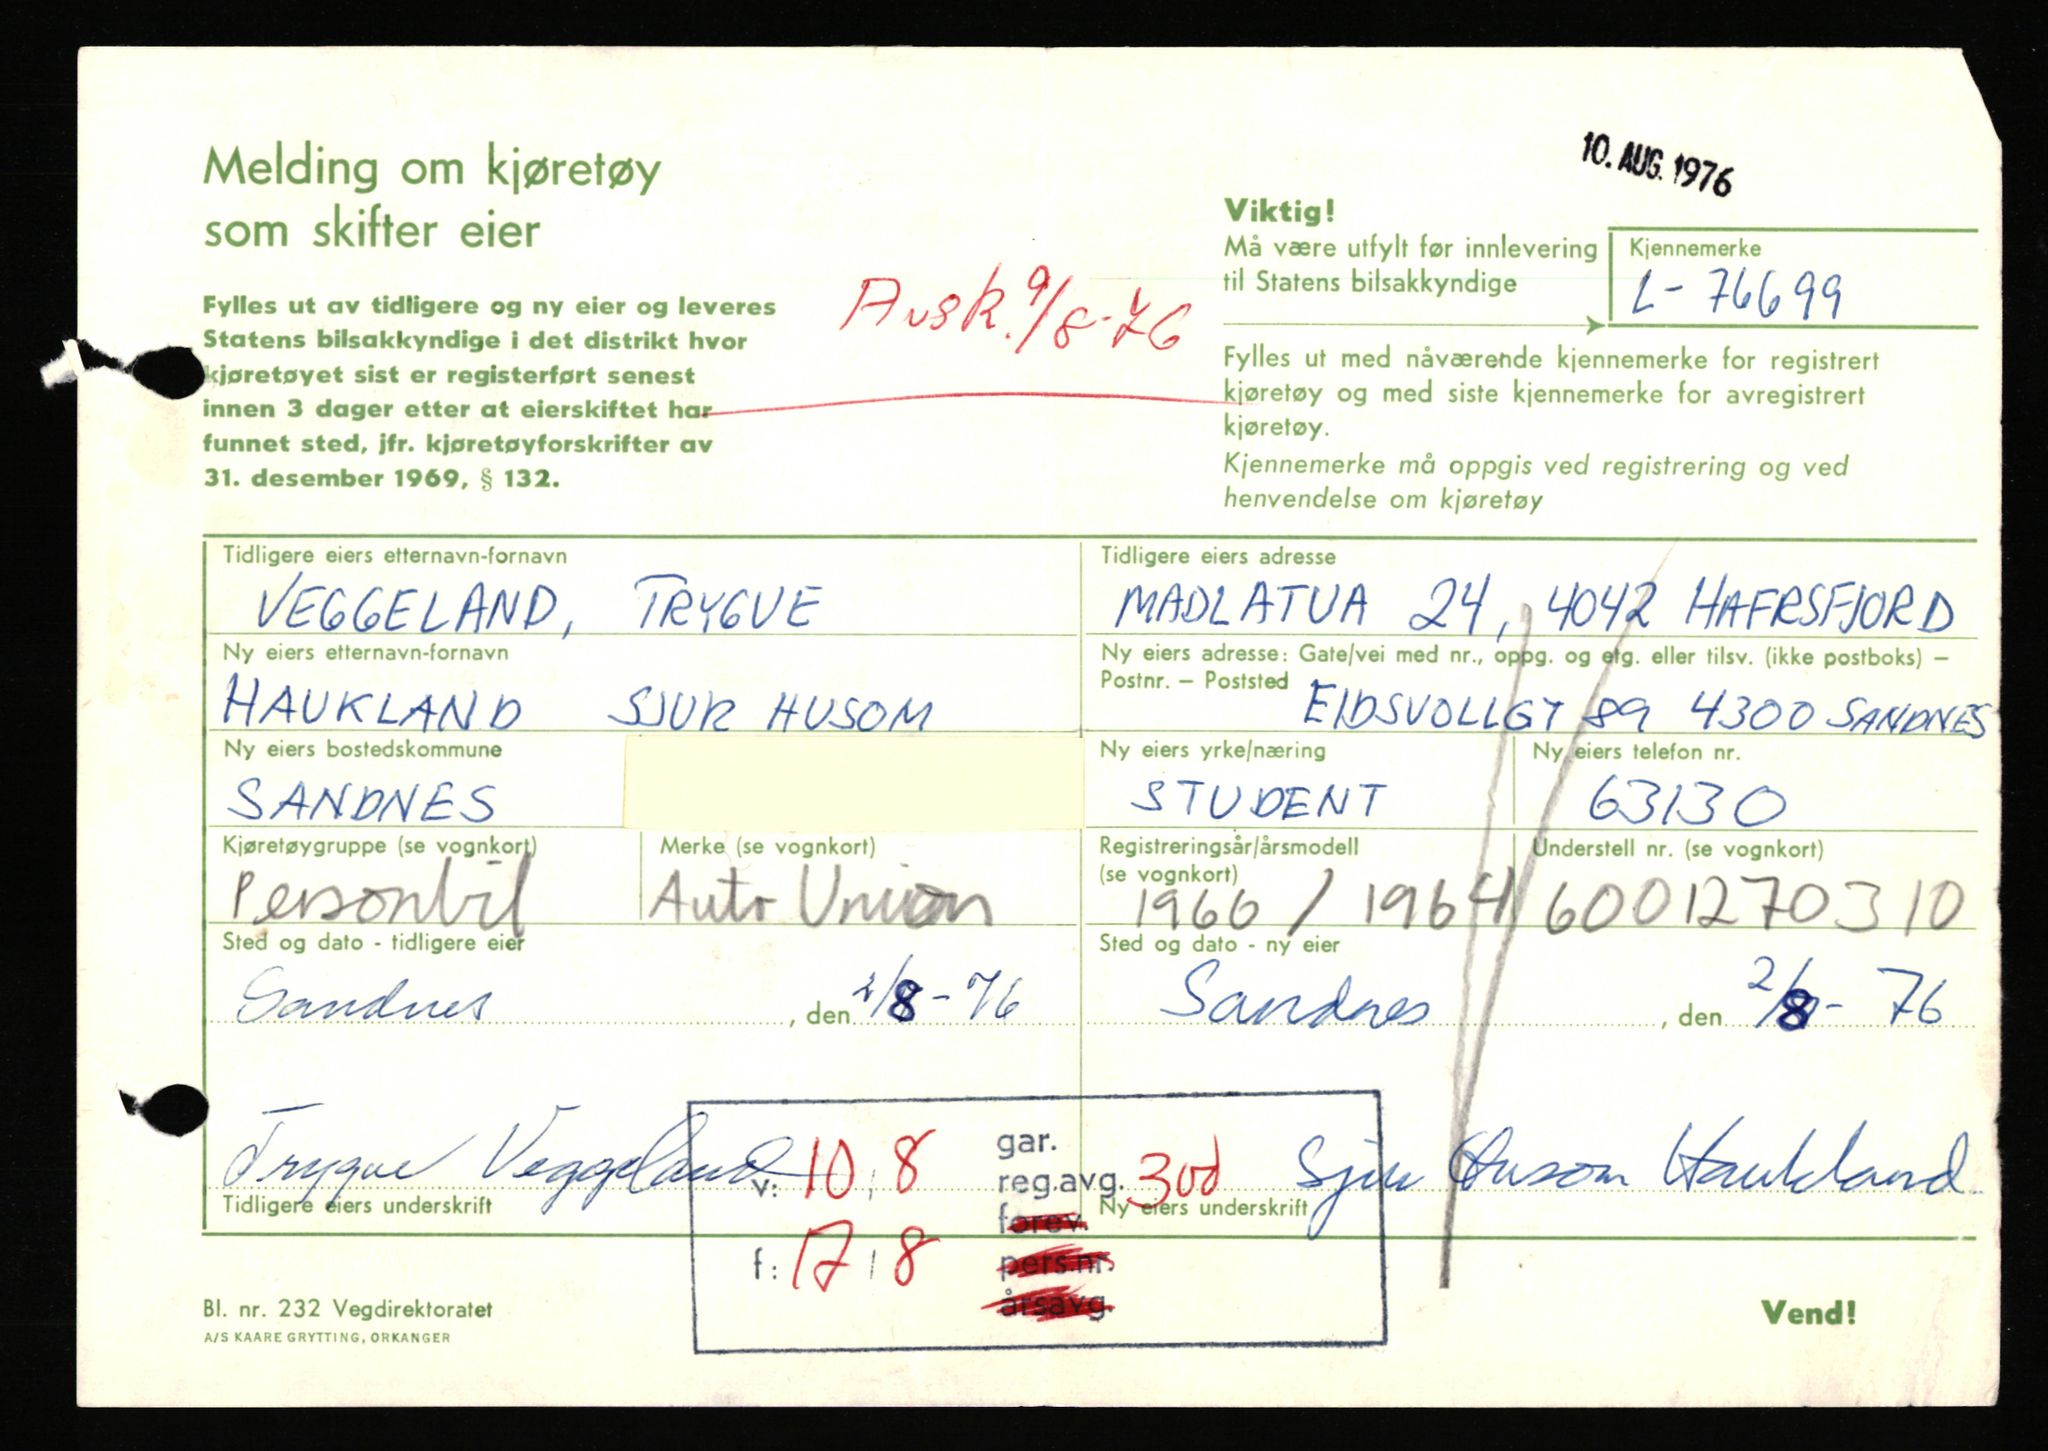 10. AUG. 1976
Melding om kjøretøy
som skifter eier
Fylles ut av tidligere og ny eier og leveres
Statens bilsakkyndige i det distrikt hvor
kjøretøyet sist er registerført senest
innen 3 dager etter at eierskiftet har
funnet sted, jfr. kjøretøyforskrifter av
31. desember 1969, § 132.
Avsk. 9/8-76
Viktig!
Må være utfylt før innlevering
til Statens bilsakkyndige
Kjennemerke
L- 76699
Fylles ut med nåværende kjennemerke for registrert
kjøretøy og med siste kjennemerke for avregistrert
kjøretøy.
Kjennemerke må oppgis ved registrering og ved
henvendelse om kjøretøy
Tidligere eiers etternavn-fornavn
VEGGELAND, TRYGVE
Tidligere eiers adresse
MADLATUA 24, 4042 HAFRSFJORD
Ny eiers etternavn-fornavn
HAUKLAND SJUR HUSOM
Ny eiers adresse: Gate/vei med nr., oppg. og etg. eller tilsv. (ikke postboks) –
Postnr. – Poststed EIDSVOLLGT 89 4300 SANDNES
Ny eiers bostedskommune
SANDNES
Ny eiers yrke/næring
STUDENT
Ny eiers telefon nr.
63130
Kjøretøygruppe (se vognkort)
Personbil
Merke (se vognkort)
Auto Union
Registreringsår/årsmodell
(se vognkort)
1966 / 1964
Understell nr. (se vognkort)
6001270310
Sted og dato - tidligere eier
Sandnes, den 2/8-76
Sted og dato - ny eier
Sandnes, den 2/8-76
Trygve Veggeland
Tidligere eiers underskrift
Sjur Husom Haukland
Ny eiers underskrift
v: 10 8
f: 17 8
gar.
reg.avg. 300
forev.
pers.nr.
årsavg.
Bl. nr. 232 Vegdirektoratet
A/S KAARE GRYTTING, ORKANGER
Vend!